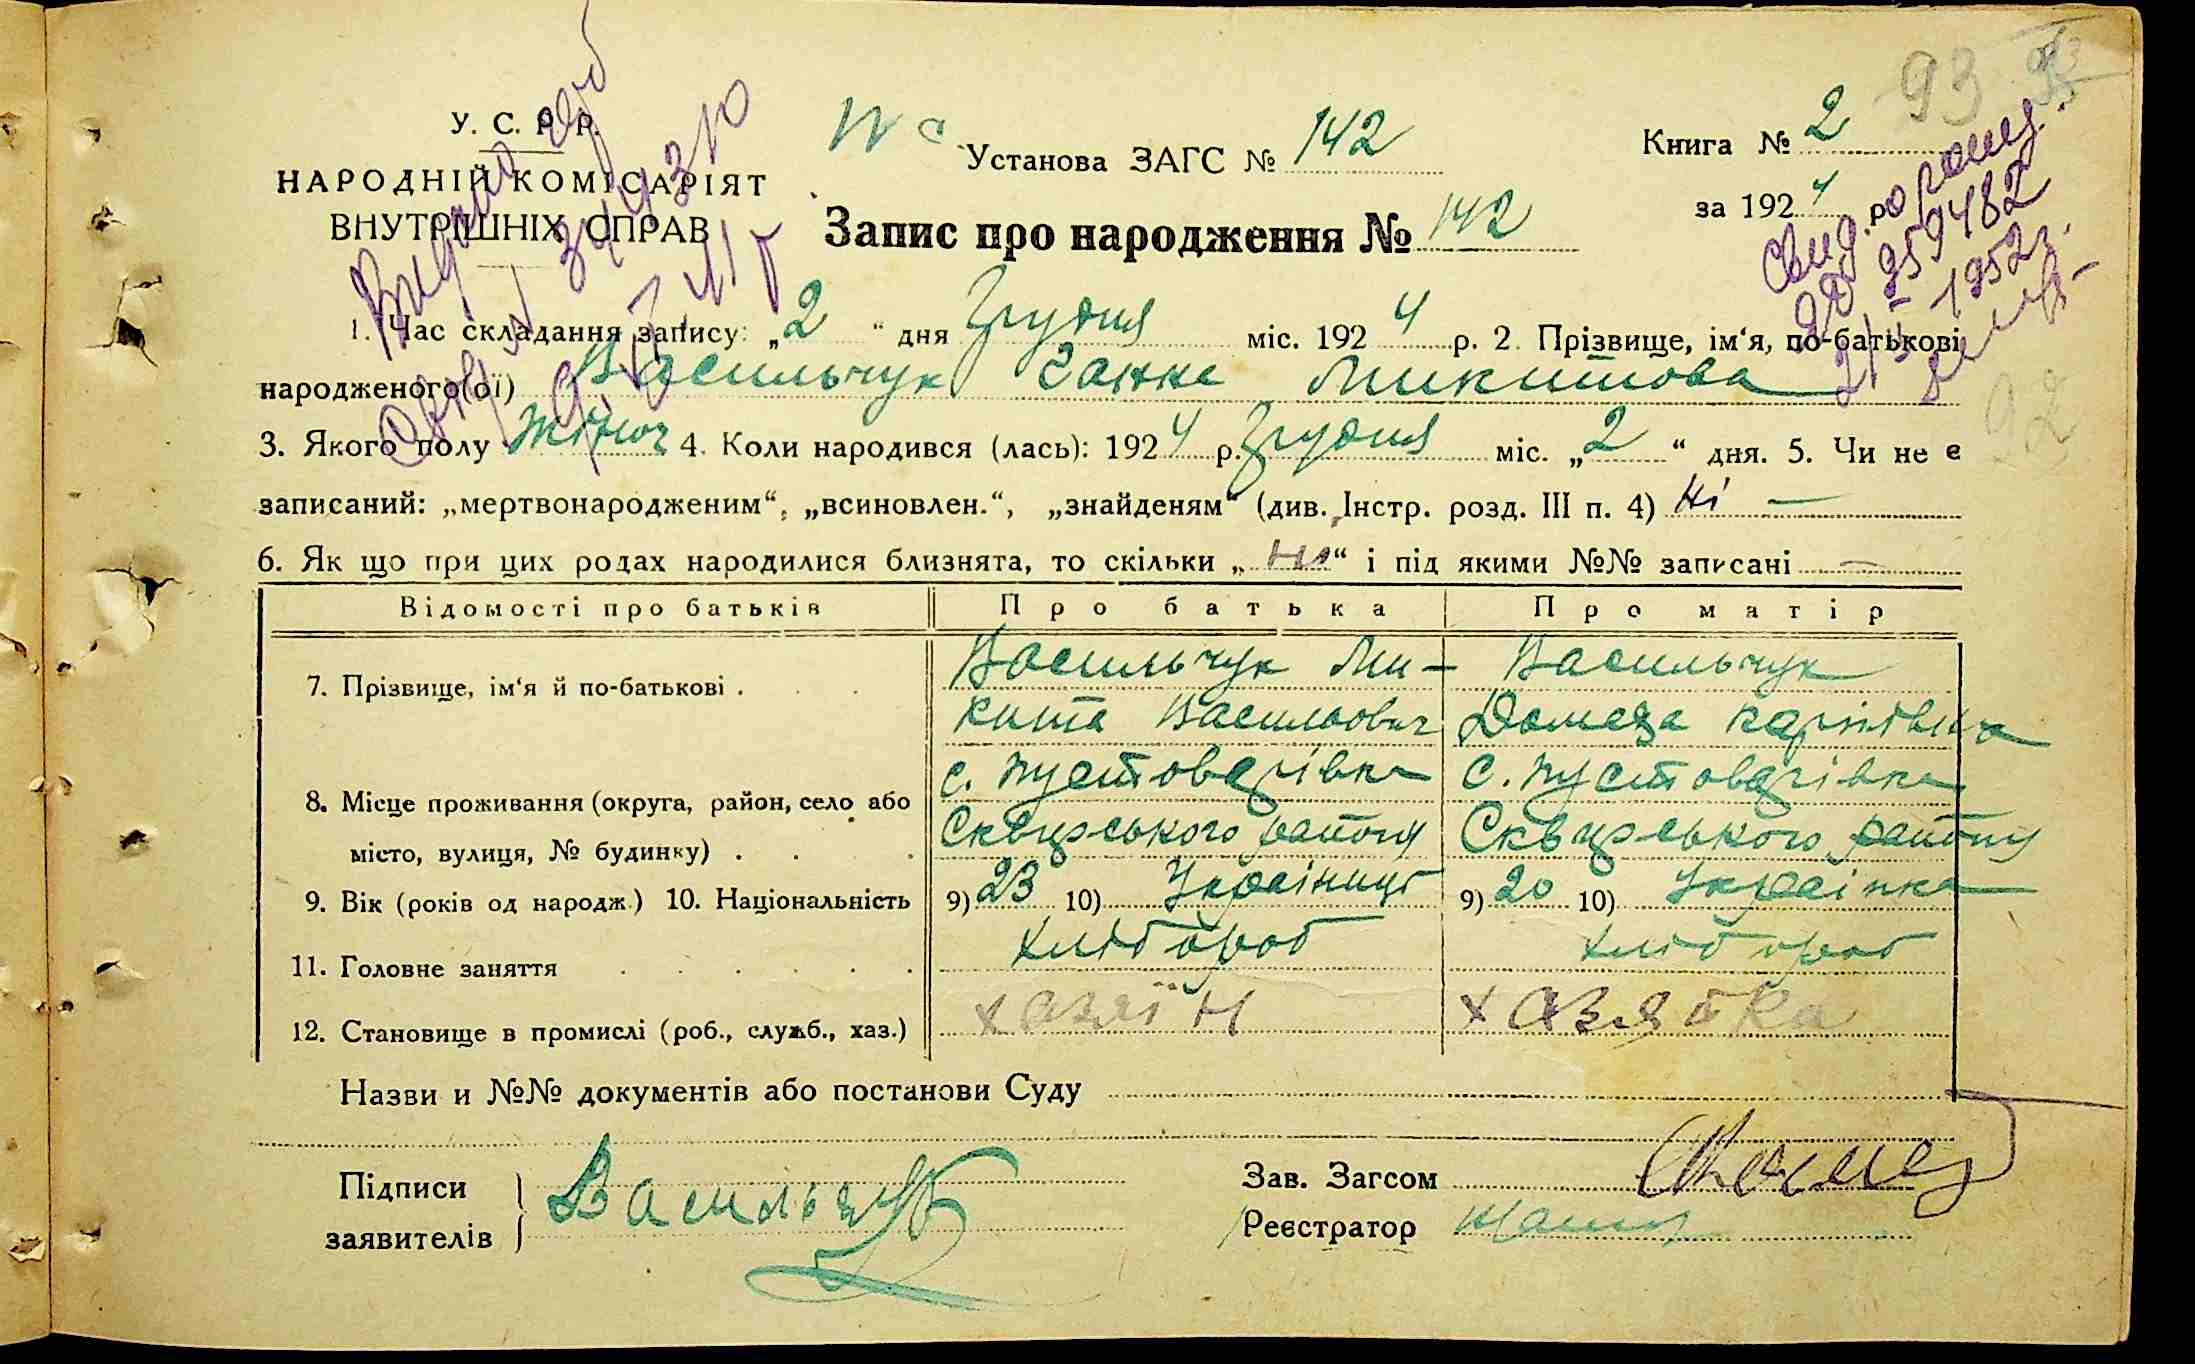 93
У. С. Р. Р.
НАРОДНІЙ КОМІСАРІЯТ
ВНУТРІШНІХ СПРАВ
Установа ЗАГС № 142
Книга № 2
за 1924 р.
Запис про народження № 142
1. Час складання запису: „2“ дня Грудня міс. 1924 р. 2. Прізвище, ім‘я, по-батькові
народженого(ої) Васильчук Ганна Микитова
3. Якого полу жіноч 4. Коли народився (лась): 1924 р. Грудня міс. „2“ дня. 5. Чи не є
записаний: „мертвонародженим“, „всиновлен.“, „знайденям“ (див. Інстр. розд. III п. 4) Ні —
6. Як що при цих родах народилися близнята, то скільки „Ні“ і під якими №№ записані —
Відомості про батьків Про батька Про матір
7. Прізвище, ім‘я й по-батькові . Васильчук Ми- Васильчук
кита Васильович Домаха Карпівна
8. Місце проживання (округа, район, село або с. Пустоварівка с. Пустоварівка
місто, вулиця, № будинку) . Сквирського району Сквирського району
9. Вік (років од народж.) 10. Національність 9) 23 10) Українець 9) 20 10) Українка
11. Головне заняття хлібороб хлібороб
12. Становище в промислі (роб., служб., хаз.) хазяїн хазяйка
Назви и №№ документів або постанови Суду
Підписи
заявителів
Васильчук
Зав. Загсом
Реєстратор
Свид. о рожд.
959482
1952 г.
92